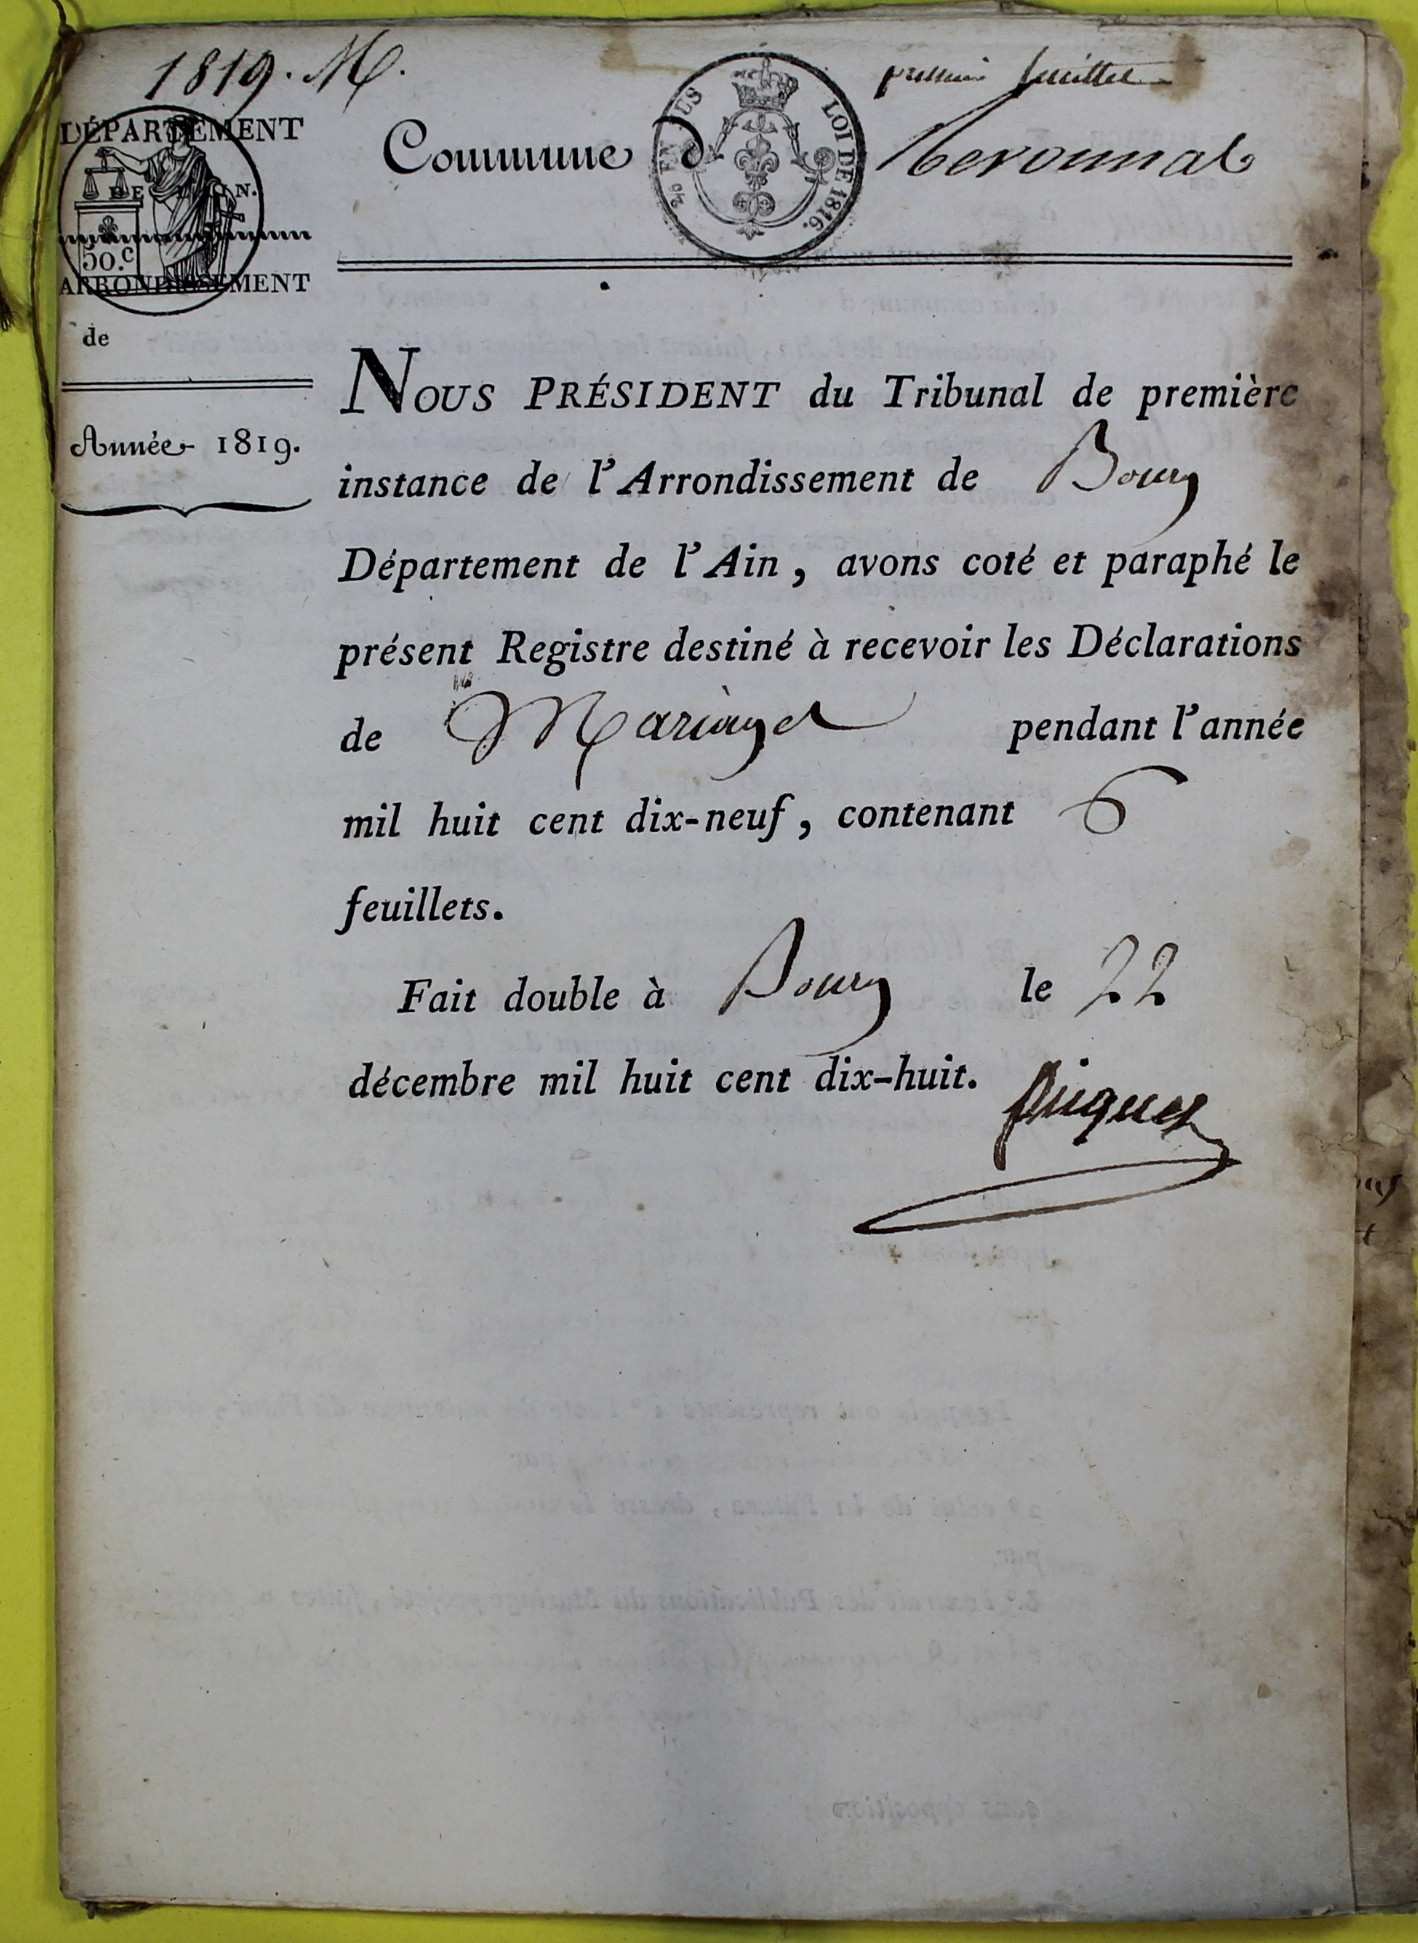 1819. M.
premier feuillet
DÉPARTEMENT
DE L'AIN.
50.c
ARRONDISSEMENT
de
Année 1819.
Commune d
EN SUS
LOI DE 1816.
NOUS PRÉSIDENT du Tribunal de première
instance de l'Arrondissement de Bourg
Département de l'Ain, avons coté et paraphé le
présent Registre destiné à recevoir les Déclarations
de Mariages pendant l'année
mil huit cent dix-neuf, contenant 6
feuillets.
Fait double à Bourg le 22
décembre mil huit cent dix-huit.